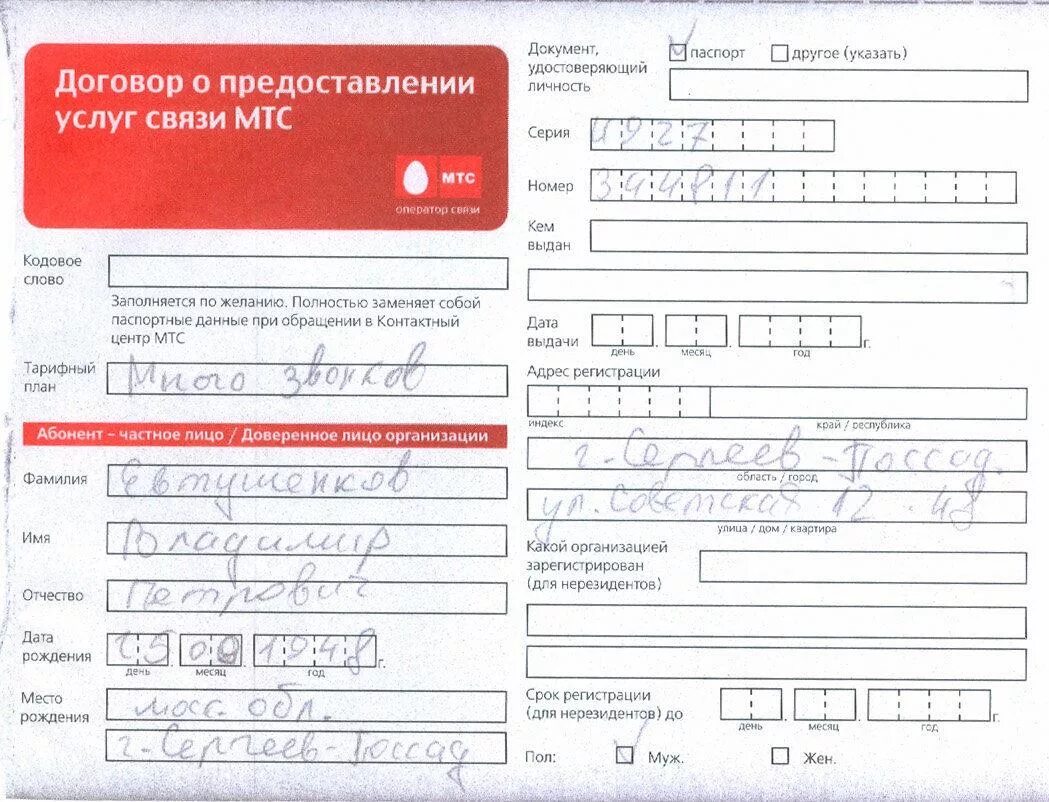 Договор о предоставлении
услуг связи МТС
МТС
оператор связи
Кодовое
слово
Заполняется по желанию. Полностью заменяет собой
паспортные данные при обращении в Контактный
центр МТС
Тарифный
план
Много звонков
Абонент – частное лицо / Доверенное лицо организации
Фамилия
Евтушенков
Имя
Владимир
Отчество
Петрович
Дата
рождения
25 09 1948 г.
день месяц год
Место
рождения
мос. обл.
г. Сергеев-Поссад
Документ,
удостоверяющий
личность
паспорт
другое (указать)
Серия
4927
Номер
344811
Кем
выдан
Дата
выдачи
г.
день месяц год
Адрес регистрации
индекс край / республика
г. Сергеев-Поссад.
область / город
ул. Советская 12 - 48
улица / дом / квартира
Какой организацией
зарегистрирован
(для нерезидентов)
Срок регистрации
(для нерезидентов) до
г.
день месяц год
Пол:
Муж.
Жен.